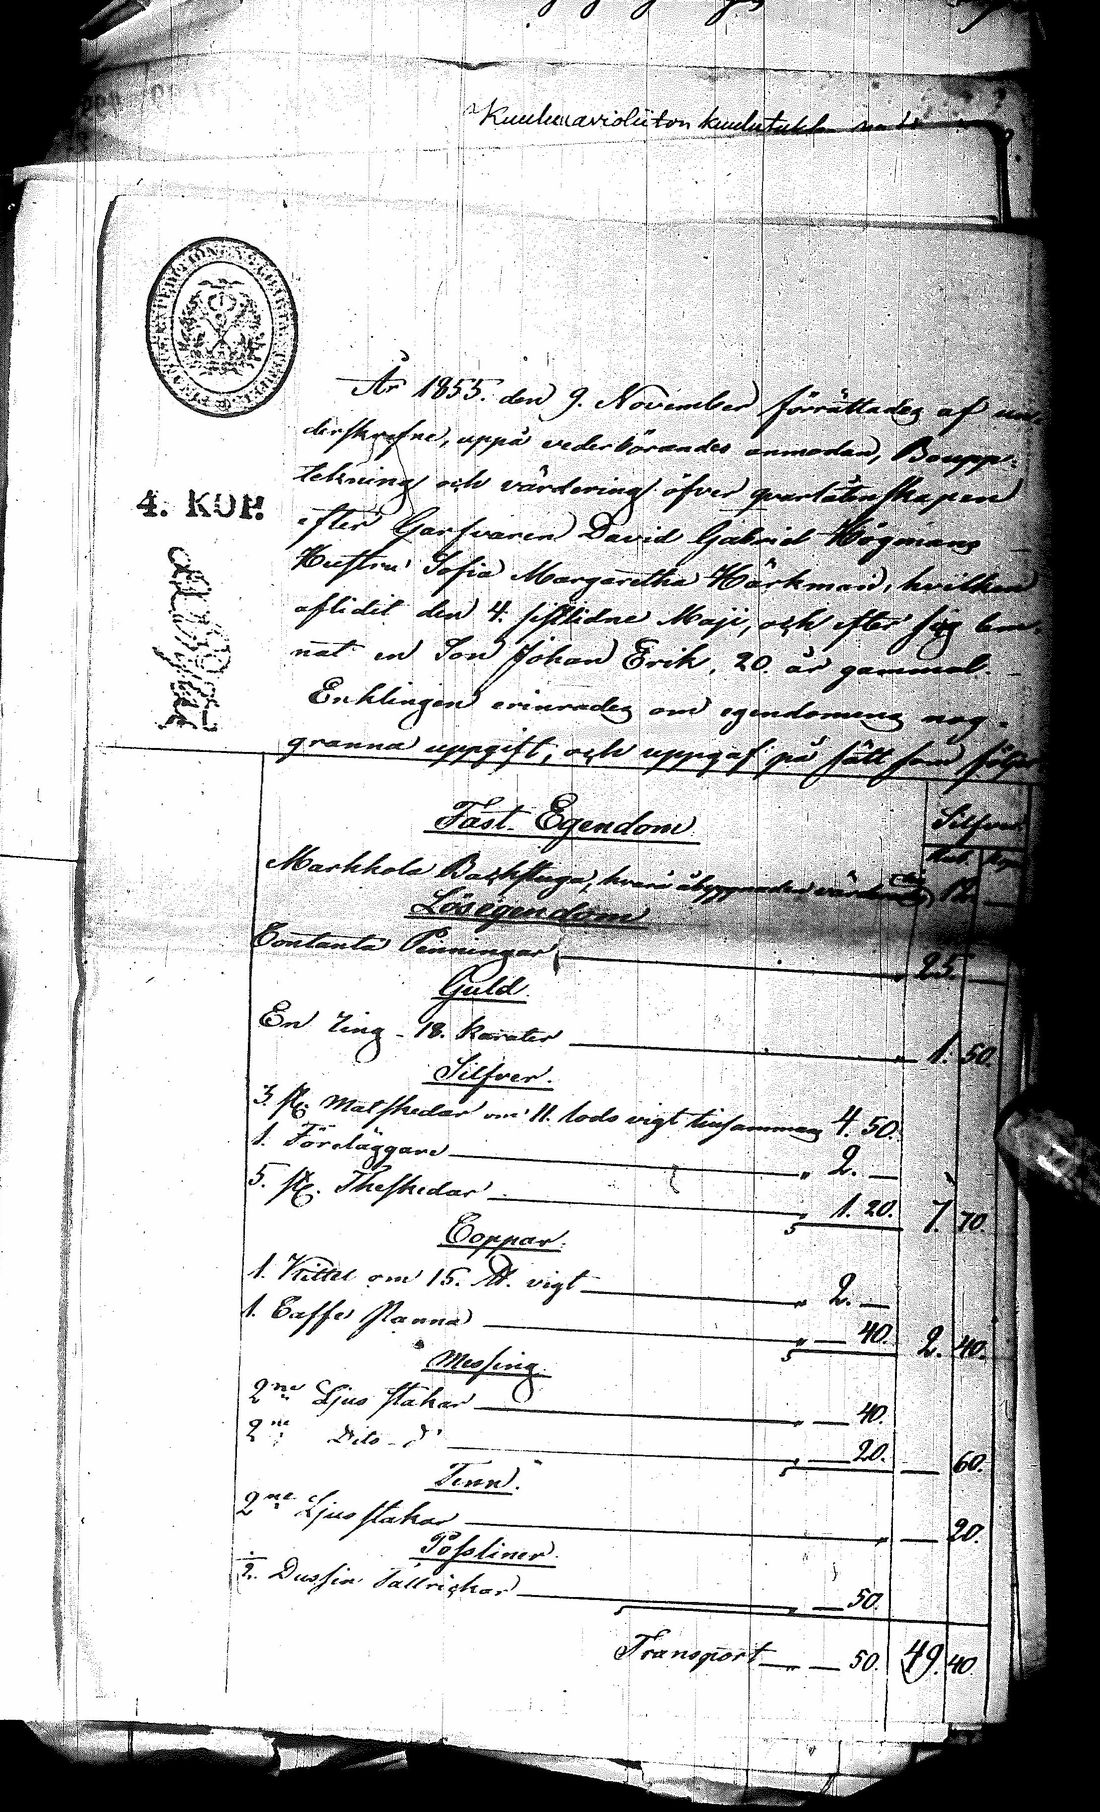 Kuulutuksen
4. KOP.
År 1855. den 9. November förrättades af un-
derskrefne, uppå vederbörandes anmodan, Boupp-
tekning och värdering öfver qvarlåtenskapen
efter Garfvaren David Gabriel Högmans
Hustru Sofia Margaretha Härkman, hvilken
aflidit den 4. sistlidne Maji, och efter sig lem-
nat en Son Johan Erik, 20. år gammal.
Enklingen erinrades om egendomens nog-
granna uppgift, och uppgaf på sätt som följer
Fast Egendom Silfver
Rub. Kop.
Markkola Backstuga, hvars åbyggnader värderades 12. —
Lösegendom
Contanta Penningar 25. —
Guld
En ring - 18. karater " 1. 50.
Silfver.
3. st. Matskedar om 11. lods vigt tillsammans 4. 50.
1. Föreläggare " 2. —
5. st. Theskedar " 1. 20. 7. 70.
Coppar.
1. Kittel om 15. ℔. vigt " 2. —
1. Caffe Panna " — 40. 2. 40.
Messing.
2ne Ljus stakar " — 40.
2ne Dito d° " — 20. — 60.
Tenn.
2ne Ljusstakar " — 20.
Possliner.
½. Dussin Tallrickar " — 50.
Transport — 50. 49. 40.